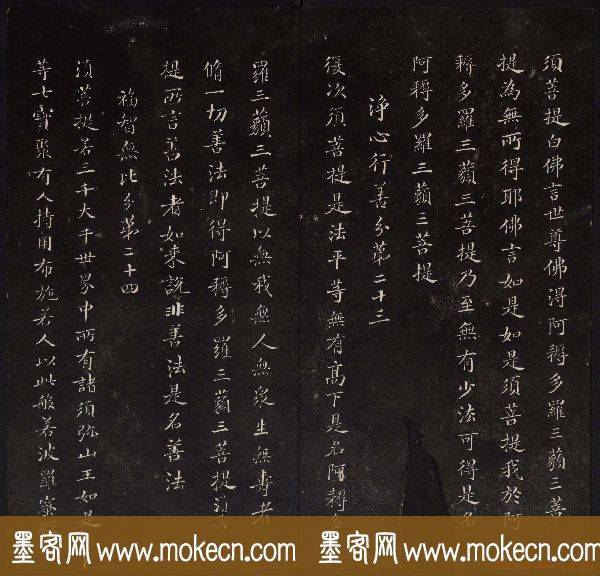 須菩提白佛言世尊佛得阿耨多羅三藐三菩
提為無所得耶佛言如是如是須菩提我於阿
耨多羅三藐三菩提乃至無有少法可得是名
阿耨多羅三藐三菩提
淨心行善分第二十三
復次須菩提是法平等無有高下是名阿耨多
羅三藐三菩提以無我無人無眾生無壽者
脩一切善法即得阿耨多羅三藐三菩提須菩
提所言善法者如來說非善法是名善法
福智無比分第二十四
須菩提若三千大千世界中所有諸須弥山王如是
等七寶聚有人持用布施若人以此般若波羅蜜
墨客网 www.mokecn.com 墨客网 www.mokecn.com